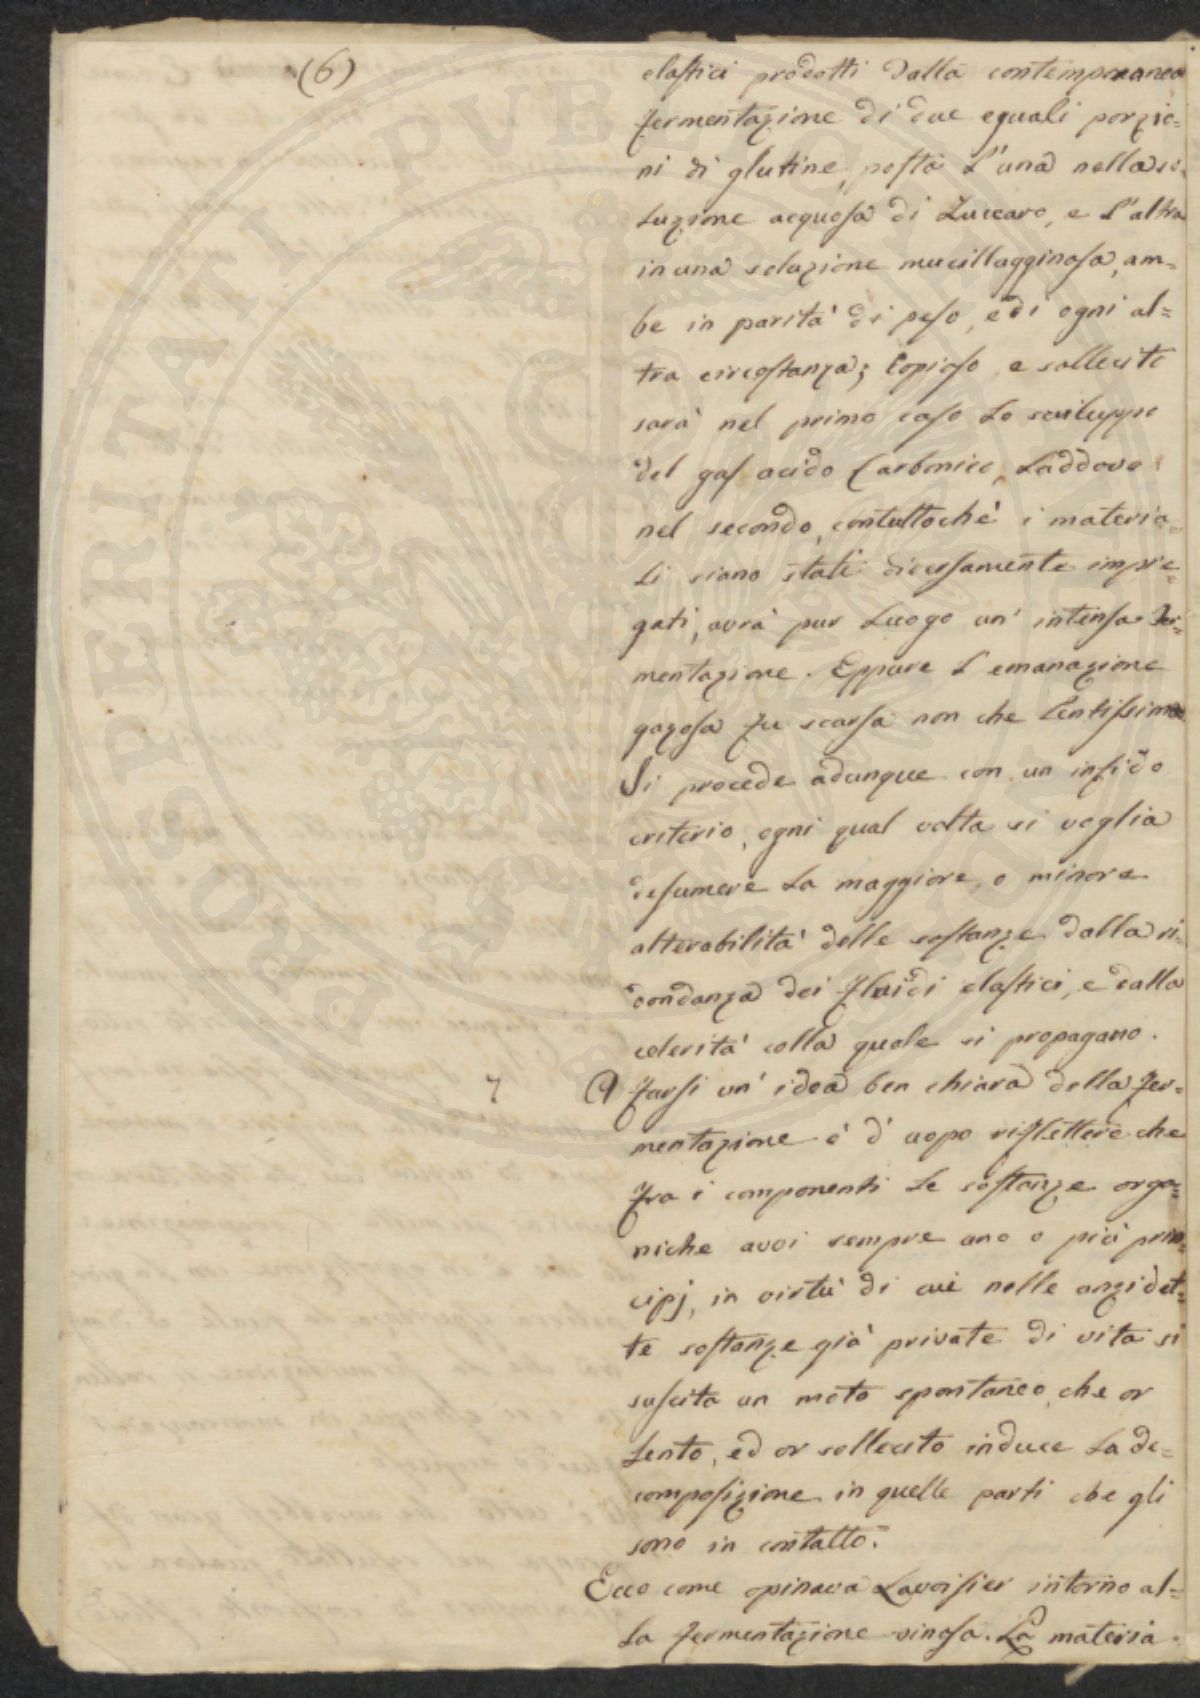 (6)
elastici prodotti dalla contemporanea
fermentazione di due eguali porzio=
ni di glutine, posta l'una nella so=
luzione acquosa di Zuccaro, e l'altra
in una soluzione mucillagginosa, am=
be in parità di peso, e di ogni al=
tra circostanza; Copioso, e sollecito
sarà nel primo caso lo sviluppo
del gas acido Carbonico, laddove
nel secondo, contuttochè i materia=
li siano stati diversamente impie=
gati, avrà pur luogo un' intensa fer=
mentazione. Eppure l'emanazione
gazosa fu scarsa non che lentissima
Si procede adunque con un infido
criterio, ogni qual volta si voglia
desumere la maggiore, o minore
alterabilità delle sostanze dalla ri=
dondanza dei fluidi elastici, e dalla
celerità colla quale si propagano.
7 A farsi un' idea ben chiara della fer=
mentazione è d'uopo riflettere che
fra i componenti le sostanze orga=
niche avvi sempre uno o più prin=
cipj, in virtù di cui nelle anzidet=
te sostanze già private di vita si
suscita un moto spontaneo, che or
lento, ed or sollecito induce la de=
composizione in quelle parti che gli
sono in contatto.
Ecco come opinava Lavoisier intorno al=
la fermentazione vinosa. La materia
PROSPERITATI PUBLICAE